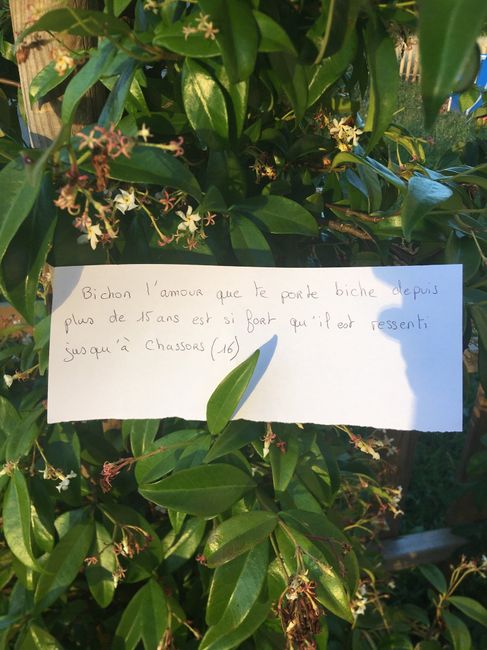 Bichon l'amour que te porte biche depuis
plus de 15 ans est si fort qu'il est ressenti
jusqu'à Chassors (16)